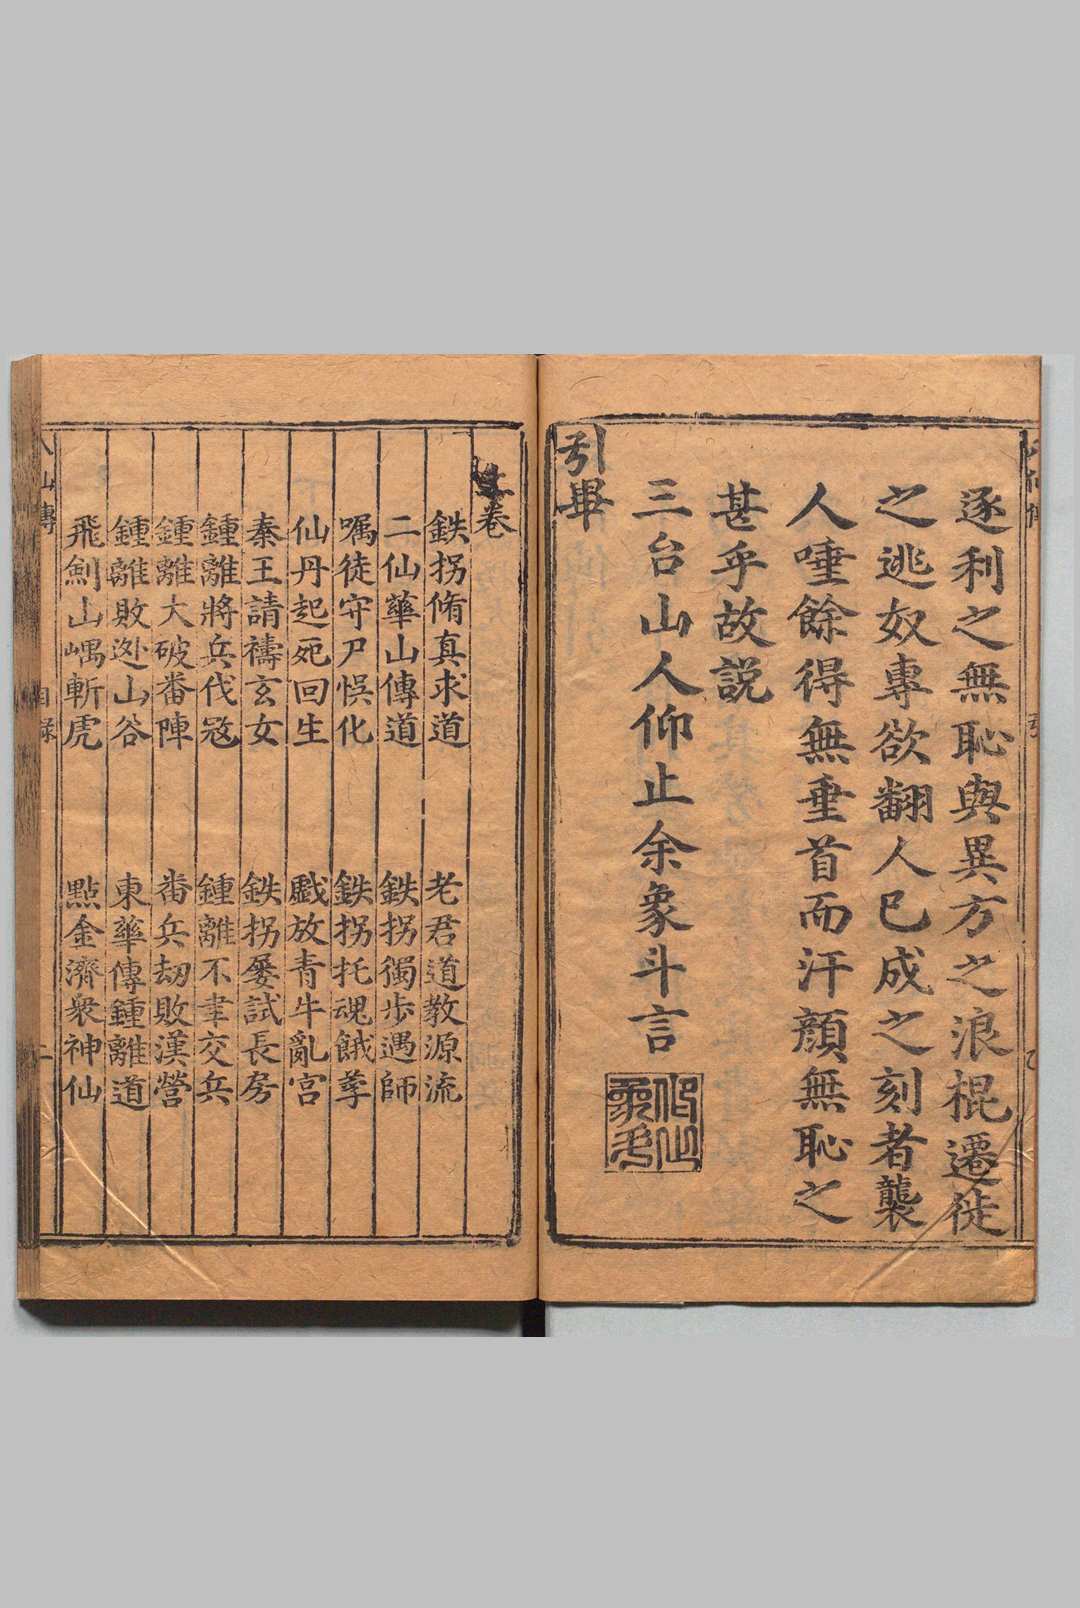 逐利之無恥與異方之浪棍遷徙
之逃奴專欲翻人已成之刻者襲
人唾餘得無垂首而汗顔無恥之
甚乎故説
三台山人仰止余象斗言
仰止
引畢
上卷
鉄拐脩真求道 老君道教源流
二仙華山傳道 鉄拐獨步遇師
嘱徒守尸悞化 鉄拐托魂餓莩
仙丹起死回生 戯放青牛亂宮
秦王請禱玄女 鉄拐屡試長房
鍾離將兵伐寇 鍾離不𦘕交兵
鍾離大破番陣 番兵刼敗漢營
鍾離敗迯山谷 東華傳鍾離道
飛劍山嵎斬虎 點金濟衆神仙
八仙傳 目録 一